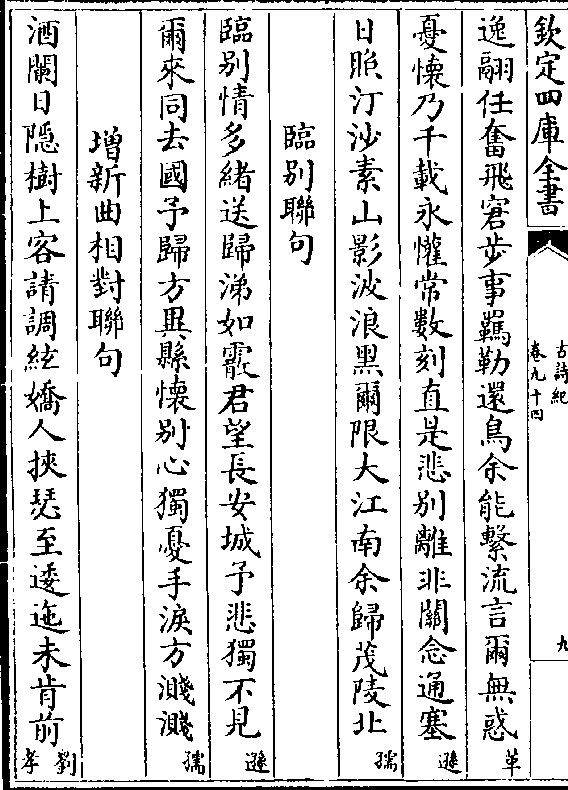 欽定四庫全書
古詩紀
卷九十四
九
逸翮任奮飛窘步事羈勒還鳥余能繫流言爾無惑革
憂懷乃千載永懽常數刻直是悲別離非關念通塞遜
日照汀沙素山影波浪黑爾限大江南余歸茂陵北孺
臨別聯句
臨别情多緒送歸涕如霰君望長安城予悲獨不見遜
爾來同去國予歸方異縣懷别心獨憂手淚方濺濺孺
增新曲相對聯句
酒闌日隱樹上客請調絃嬌人挾瑟至逶迤未肯前劉孝